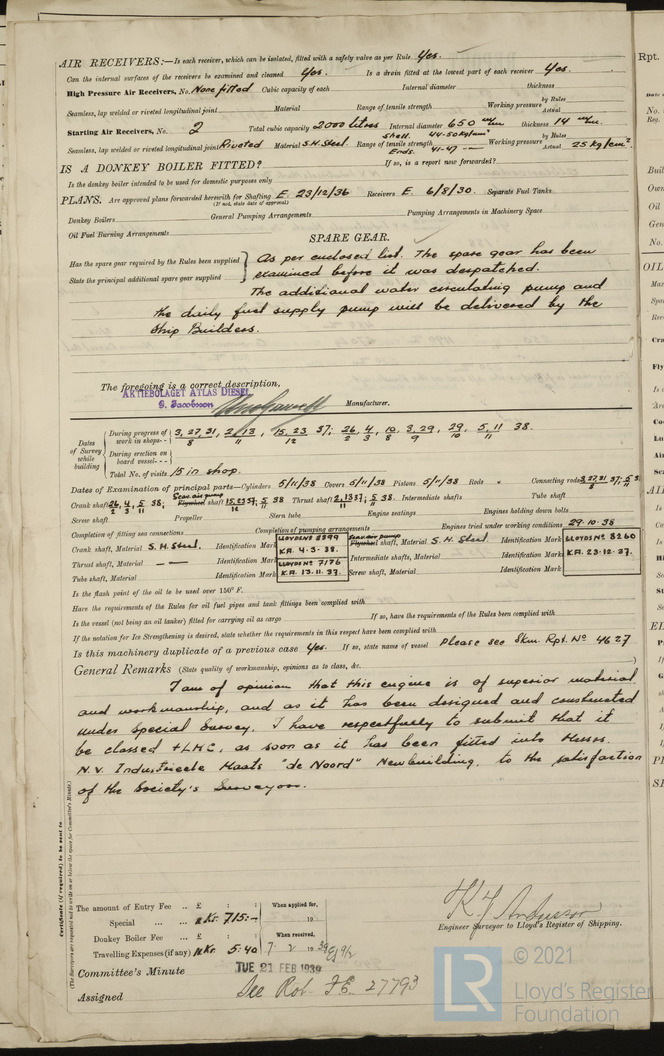 AIR RECEIVERS:—Is each receiver, which can be isolated, fitted with a safety valve as per Rule Yes.
Can the internal surfaces of the receivers be examined and cleaned Yes. Is a drain fitted at the lowest part of each receiver Yes.
High Pressure Air Receivers, No. None fitted Cubic capacity of each Internal diameter thickness
Seamless, lap welded or riveted longitudinal joint Material Range of tensile strength Working pressure by Rules Actual
Starting Air Receivers, No. 2 Total cubic capacity 2000 litres Internal diameter 650 m/m thickness 14 m/m.
Seamless, lap welded or riveted longitudinal joint Riveted Material S.H. Steel Range of tensile strength Shell. 44-50 kg/mm² Ends. 41-47 —"— Working pressure by Rules Actual 25 kg/cm².
IS A DONKEY BOILER FITTED? If so, is a report now forwarded?
Is the donkey boiler intended to be used for domestic purposes only
PLANS. Are approved plans forwarded herewith for Shafting E. 23/12/36 Receivers E. 6/8/30. Separate Fuel Tanks
(If not, state date of approval)
Donkey Boilers General Pumping Arrangements Pumping Arrangements in Machinery Space
Oil Fuel Burning Arrangements
SPARE GEAR.
Has the spare gear required by the Rules been supplied As per enclosed list. The spare gear has been
State the principal additional spare gear supplied examined before it was despatched.
The additional water circulating pump and
the daily fuel supply pump will be delivered by the
Ship Builders.
The foregoing is a correct description,
AKTIEBOLAGET ATLAS DIESEL
G. Jacobsson Manufacturer.
Dates of Survey while building
During progress of work in shops-- 3, 27, 31, 2, 13, 15, 23 37; 26, 4, 10, 3, 29, 29, 5, 11 38.
8 11 12 2 3 8 9 10 11
During erection on board vessel---
Total No. of visits 15 in shop.
Dates of Examination of principal parts—Cylinders 5/11/38 Covers 5/11/38 Pistons 5/11/38 Rods " Connecting rods 3,27,31 37; 5 38
Crank shaft 26, 4, 5 38; Scav. air pump Flywheel shaft 15,23 37; 5 38 Thrust shaft 2,13 37; 5 38. Intermediate shafts Tube shaft
Screw shaft Propeller Stern tube Engine seatings Engines holding down bolts
Completion of fitting sea connections Completion of pumping arrangements Engines tried under working conditions 29.10.38
Crank shaft, Material S.H. Steel. Identification Mark LLOYDS No 8399 K.A. 4.3.38. Scav. air pump Flywheel shaft, Material S.H. Steel. Identification Mark LLOYDS No 8260 K.A. 23.12.37.
Thrust shaft, Material —"— Identification Mark LLOYDS No 7176 K.A. 13.11.37. Intermediate shafts, Material Identification Marks
Tube shaft, Material Identification Mark Screw shaft, Material Identification Mark
Is the flash point of the oil to be used over 150° F.
Have the requirements of the Rules for oil fuel pipes and tank fittings been complied with
Is the vessel (not being an oil tanker) fitted for carrying oil as cargo If so, have the requirements of the Rules been complied with
If the notation for Ice Strengthening is desired, state whether the requirements in this respect have been complied with
Is this machinery duplicate of a previous case Yes. If so, state name of vessel Please see Skm. Rpt. No 4627
General Remarks (State quality of workmanship, opinions as to class, &c.
I am of opinion that this engine is of superior material
and workmanship, and as it has been designed and constructed
under Special Survey, I have respectfully to submit that it
be classed +LMC, as soon as it has been fitted into Messrs.
N.V. Industrieele Maats "de Noord" Newbuilding, to the satisfaction
of the Society's Surveyors.
Certificate (if required) to be sent to
(The Surveyors are requested not to write on or below the space for Committee's Minute.)
The amount of Entry Fee .. £ : : When applied for,
Special ... ... Kr. 715:— 19
Donkey Boiler Fee ... £ : : When received,
Travelling Expenses (if any) Kr. 5.40 7. 2 19 39
Engineer Surveyor to Lloyd's Register of Shipping.
Committee's Minute TUE 21 FEB 1939
Assigned See Rot. F.E. 27793
© 2021
LR
Lloyd's Register
Foundation
Rpt.